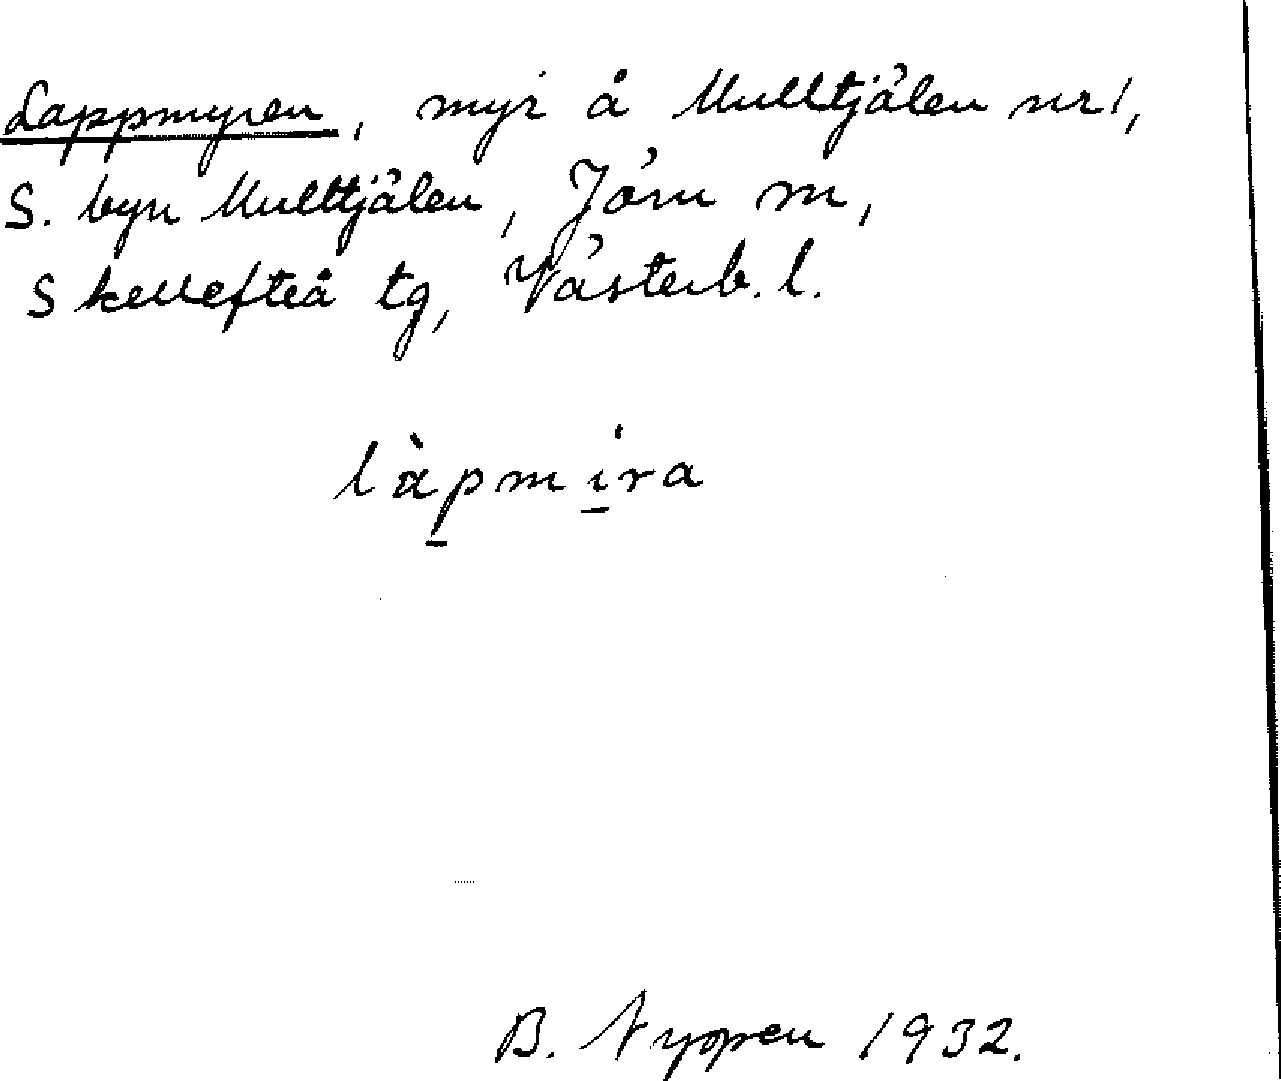 Lappmyren, myr å Mulltjälen nr 1,
S. byn Mulltjälen, Jörn m,
Skellefteå tg, Västerb. l.
làpmira
B. Nyppen 1932.